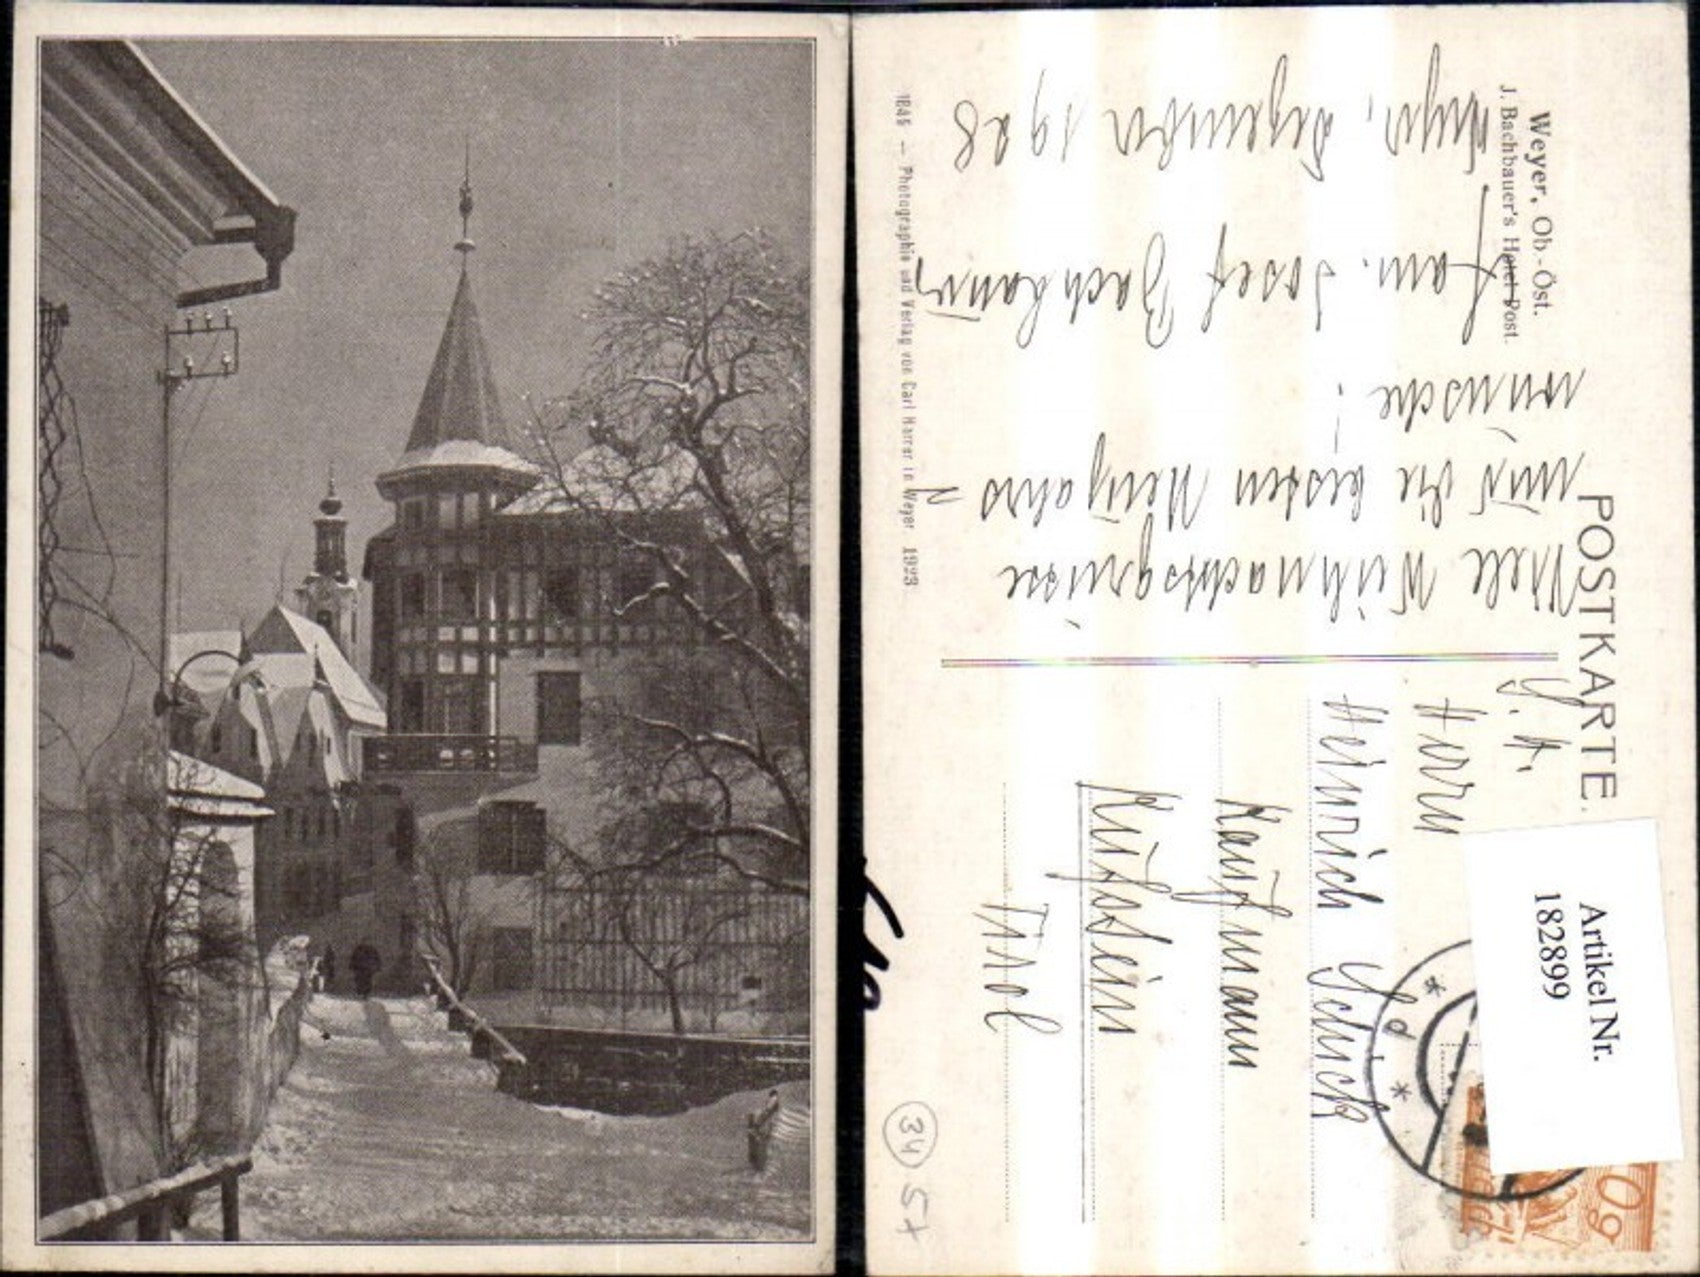 POSTKARTE.
Weyer, Ob-Öst.
J. Bachbauer's Hotel Post.
Viele Weihnachtsgrüsse
und die besten Neujahrs
wünsche!
Fam. Josef Bachbauer
Weyer, Dezember 1928
1845 — Photographie und Verlag von Carl Harrer in Weyer 1923
Herrn
Heinrich Schück
Kaufmann
Kufstein
Tirol
Artikel Nr.
182899
34
57